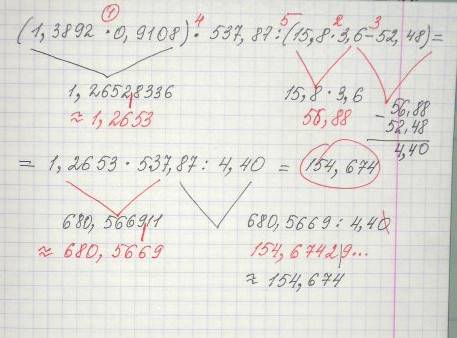 ① 4 5 2 3
(1,3892 · 0,9108) · 537,87 : (15,8 · 3,6 – 52,48) =
1,26528336
≈ 1,2653
15,8 · 3,6
56,88
– 56,88
52,48
4,40
= 1,2653 · 537,87 : 4,40 = 154,674
680,566911
≈ 680,5669
680,5669 : 4,40
154,67429...
≈ 154,674